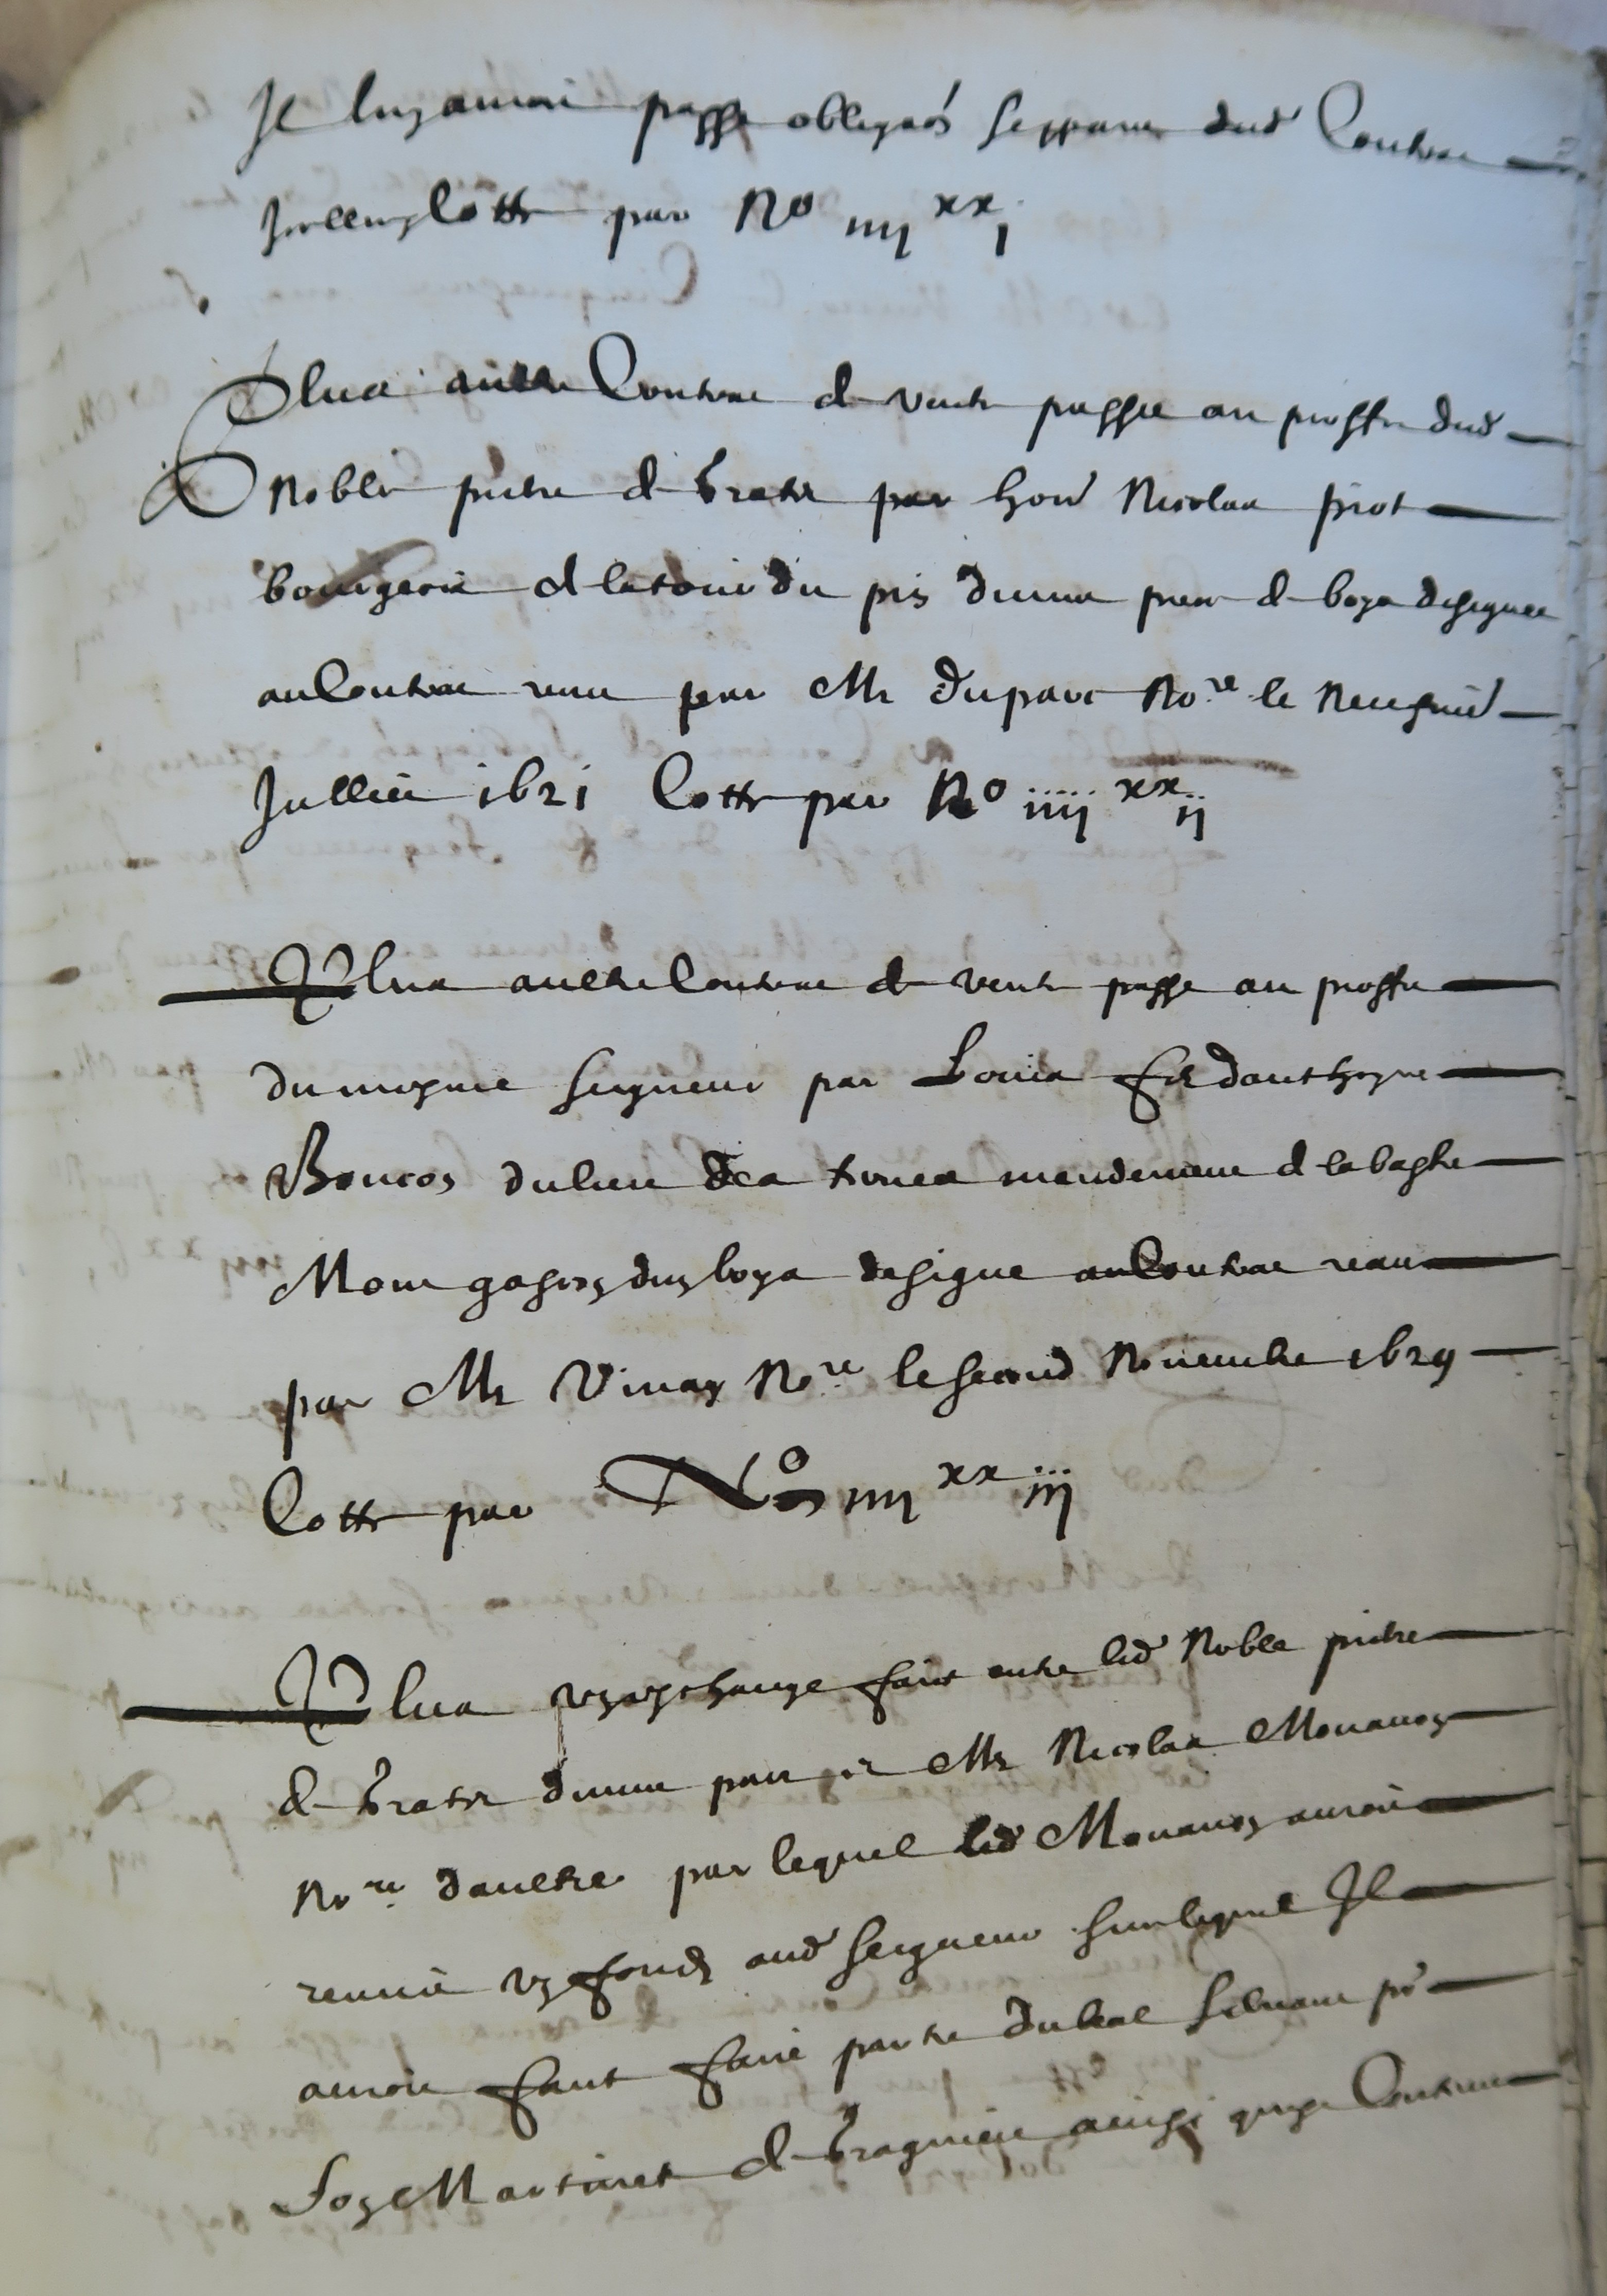 Il luy auroit passe obligaõn separee dud Contrac
Icelluy Cotte par No iiij xx j
Plus aultre Contrac de vente passee au proffit dud
Noble pierre de Bratet par hon Nicolas piot
bourgeois de la tour du pin dune piece de boys designee
au Contrac receu par Mr Duparc No.re le neufvie
Jullier 1621 Cotte par No iiij xx ij
Plus aultre Contrac de vente passe au proffit
du mesme seigneur par Louis filz danthoyne
Boucoz du lieu des mandement de la bastie
Mont gascon duy boys designe au Contrac receu
par Mr Vinay No.re le second Novembre 1629
Cotte par No iiij xx iij
Plus vy eychange faict entre led Noble pierre
de Bratet dune part et Mr Nicolas Monavoz
No.re daultre par lequel led Monavoz auroit
remis vy fondz aud seigneur sur lequel Il
auroit faict faire partie du beal servant po
Soy Martinet de Bragnieu ainsi quy Contient